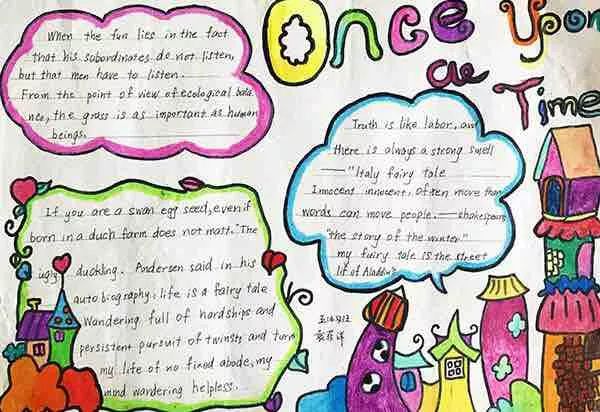 Once Upon
a Time
When the fun lies in the fact
that his subordinates do not listen,
but that men have to listen.
From the point of view of ecological bala
nce, the grass is as important as human
beings.
Truth is like labor, an
there is always a strong smell
—"Italy fairy tale
Innocent innocent, often more than
words can move people. — shakespeare
"the story of the winter"
my fairy tale is the street
lif of Aladdin"
If you are a swan egg seed, even if
born in a duch farm does not matt. "The
ugly duckling. Andersen said in his
autobiography: life is a fairy tale
Wandering full of hardships and
persistent pursuit of twinsts and turn
my life of no fixed abode, my
mind wandering helpless.